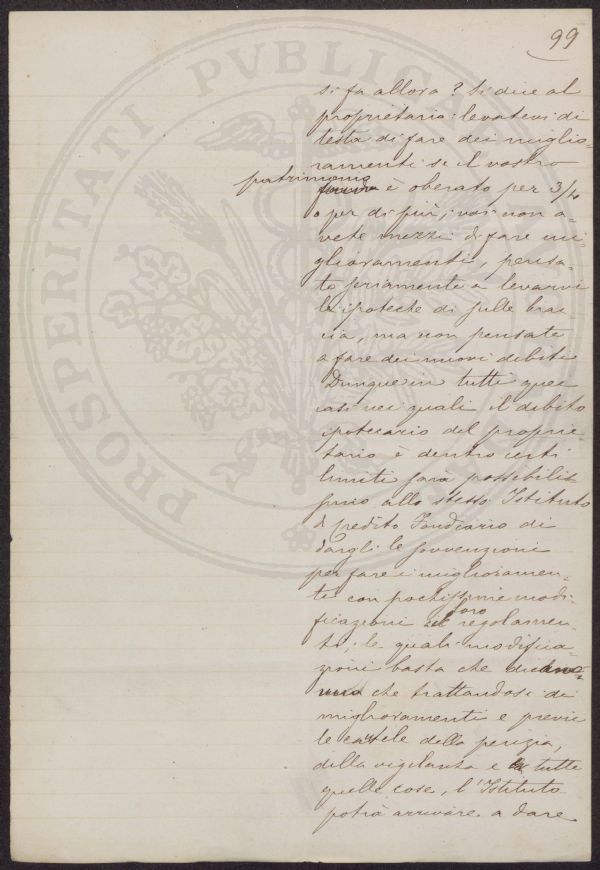 99
si fa allora? Si dice al
proprietario: levatevi di
testa di fare dei miglio-
ramenti se il vostro
patrimonio
è oberato per 3/4
o per di più; voi non a-
vete mezzi di fare mi-
glioramenti, pensa-
te seriamente a levarvi
le ipoteche di sulle brac-
cia, ma non pensate
a fare dei nuovi debiti
Dunque in tutti quei
casi nei quali il debito
ipotecario del proprie-
tario è dentro certi
limiti sarà possibilis-
simo allo stesso Istituto
di Credito Fondiario di
dargli le sovvenzioni
per fare i miglioramen-
ti con pochissime modi-
ficazioni al loro regolamen-
to, le quali modifica-
zioni basta che dicano
che trattandosi di
miglioramenti e previe
le cautele della perizia,
della vigilanza e tutte
quelle cose, l'Istituto
potrà arrivare a dare
PROSPERITATI PVBLICAE